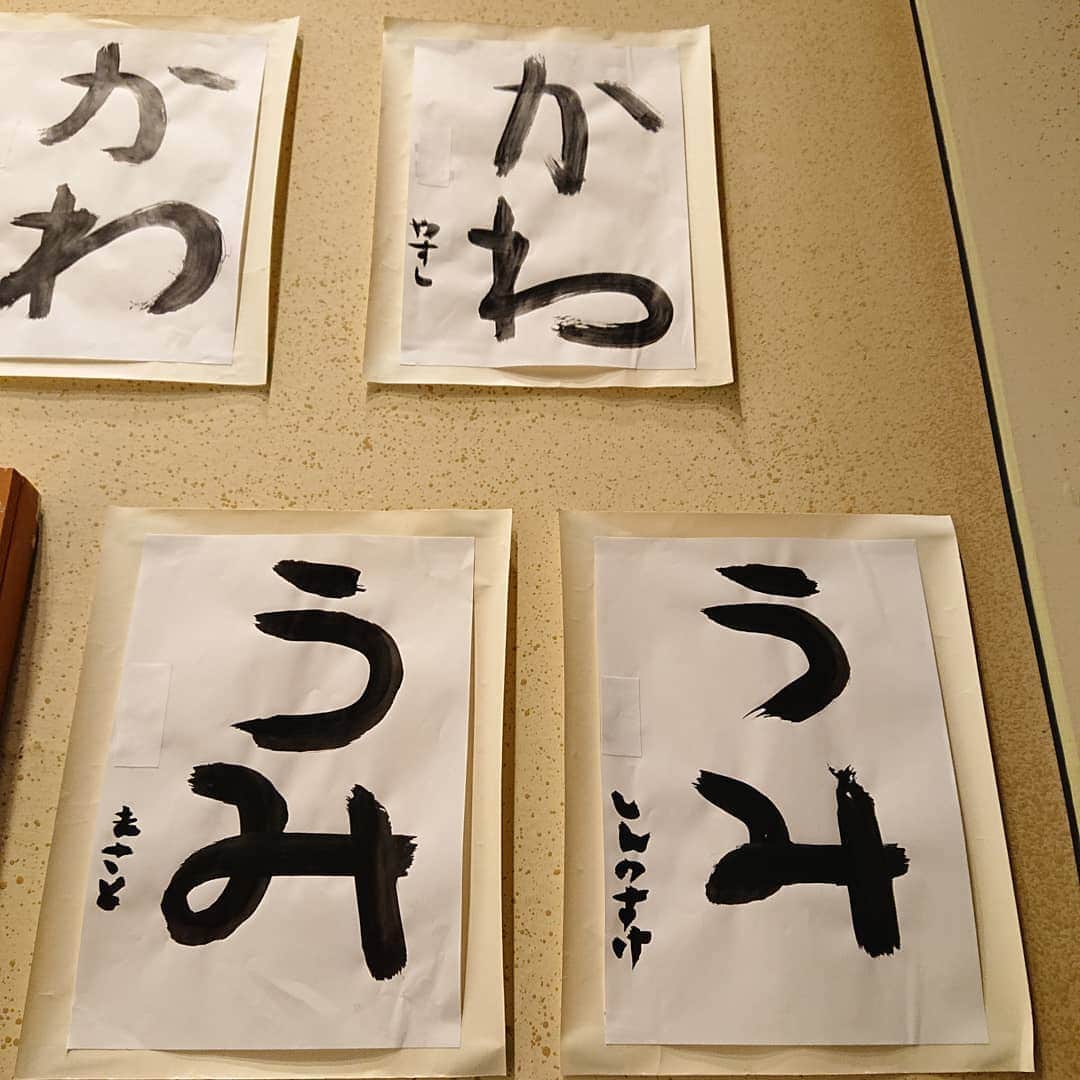 かわ
かわ
やすし
うみ
まさと
うみ
しんのすけ